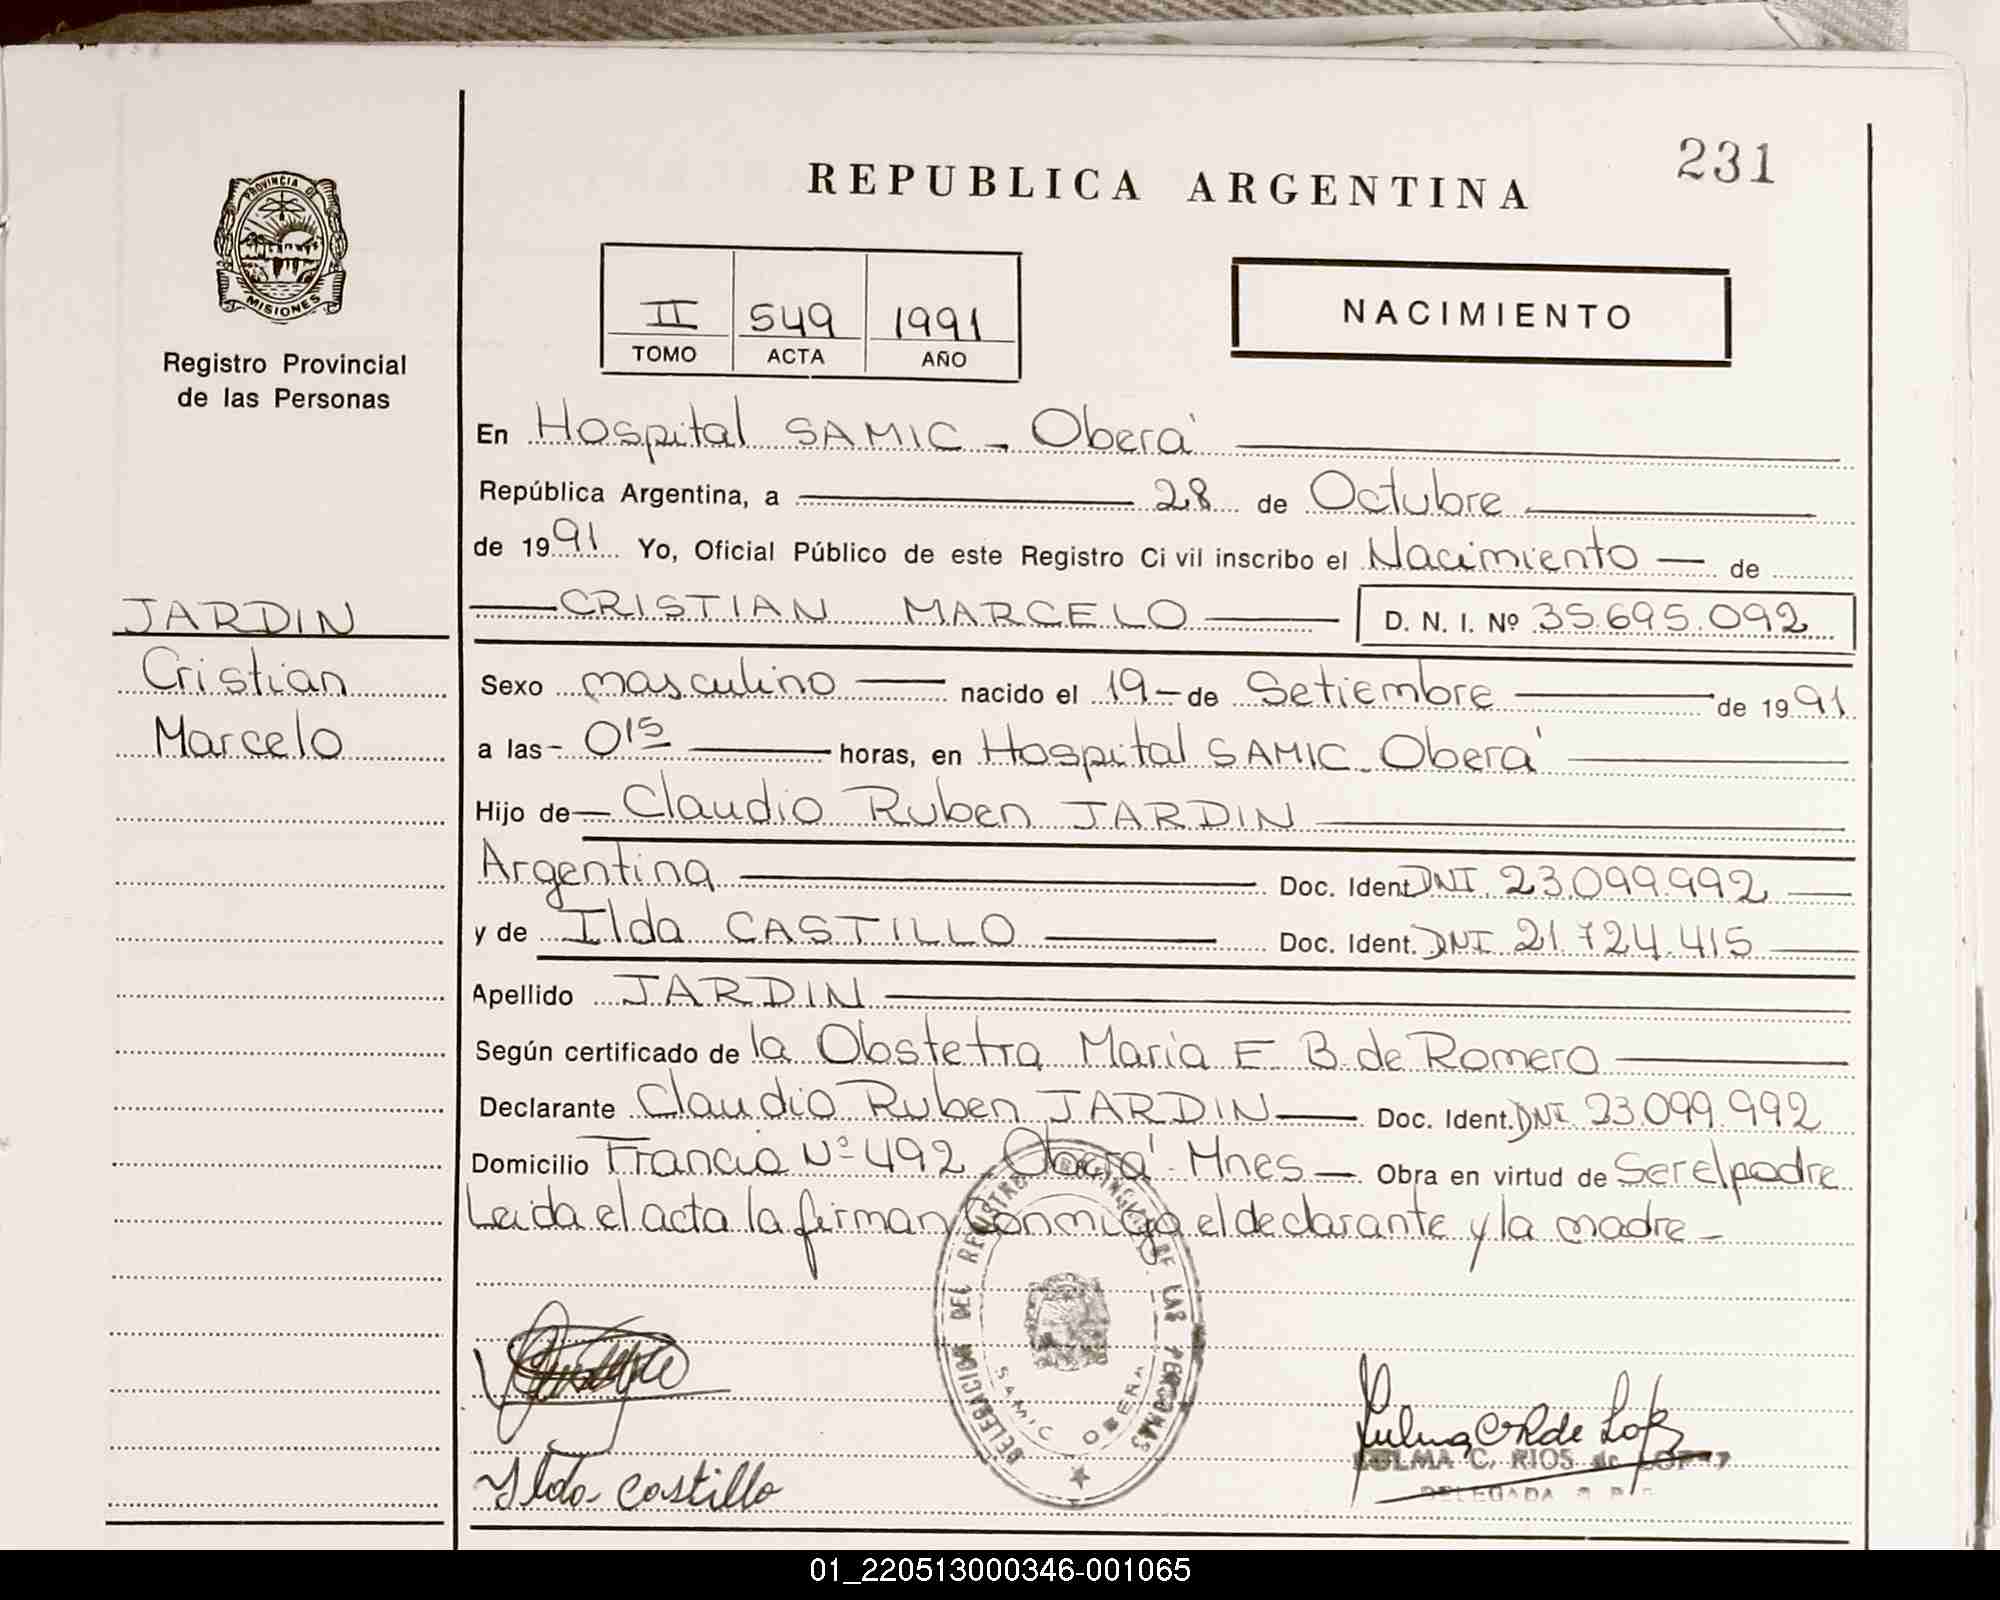 231
REPUBLICA ARGENTINA
PROVINCIA DE
MISIONES
Registro Provincial
de las Personas
II 549 1991
TOMO ACTA AÑO
NACIMIENTO
En Hospital SAMIC - Oberá
República Argentina, a 28 de Octubre
de 1991 Yo, Oficial Público de este Registro Civil inscribo el Nacimiento — de
JARDIN
Cristian
Marcelo
CRISTIAN MARCELO D. N. I. Nº 35.695.092
Sexo masculino nacido el 19 - de Setiembre de 1991
a las - 0 15 horas, en Hospital SAMIC - Oberá
Hijo de — Claudio Ruben JARDIN
Argentina Doc. Ident. DNI 23.099.992
y de Ilda CASTILLO Doc. Ident. DNI 21.724.415
Apellido JARDIN
Según certificado de la Obstetra Maria E. B. de Romero
Declarante Claudio Ruben JARDIN — Doc. Ident. DNI 23.099.992
Domicilio Francia Nº 492 - Oberá - Mnes — Obra en virtud de ser el padre
Leida el acta la firman conmigo el declarante y la madre -
DELEGACION DEL REGISTRO PROVINCIAL DE LAS PERSONAS
SAMIC OBERA
Ilda Castillo
ZULMA C. RIOS de LOPEZ
DELEGADA
01_220513000346-001065